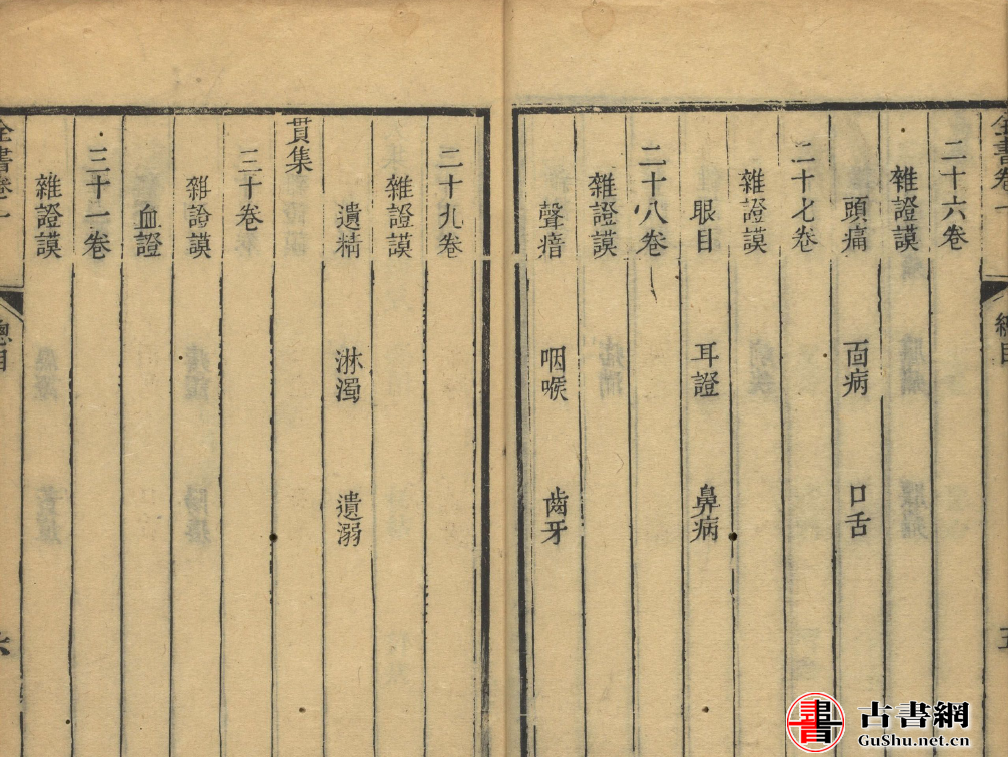 二十六卷
雜證謨
頭痛 面病 口舌
二十七卷
雜證謨
眼目 耳證 鼻病
二十八卷
雜證謨
聲瘖 咽喉 齒牙
二十九卷
雜證謨
遺精 淋濁 遺溺
貫集
三十卷
雜證謨
血證
三十一卷
雜證謨
全書卷一
總目
六
古書網
GuShu.net.cn